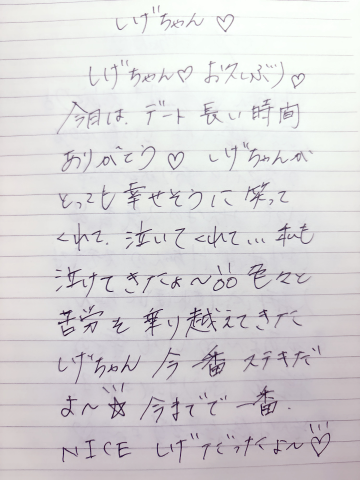 しげちゃん♡
しげちゃん♡お久しぶり♡
今日は、デート長い時間
ありがとう♡ しげちゃんが
とっても幸せそうに笑って
くれて、泣いてくれて…私も
泣けてきたよ〜 色々と
苦労を乗り越えてきた
しげちゃん 今一番ステキだ
よ〜☆ 今までで一番.
NICE しげだったよ〜♡